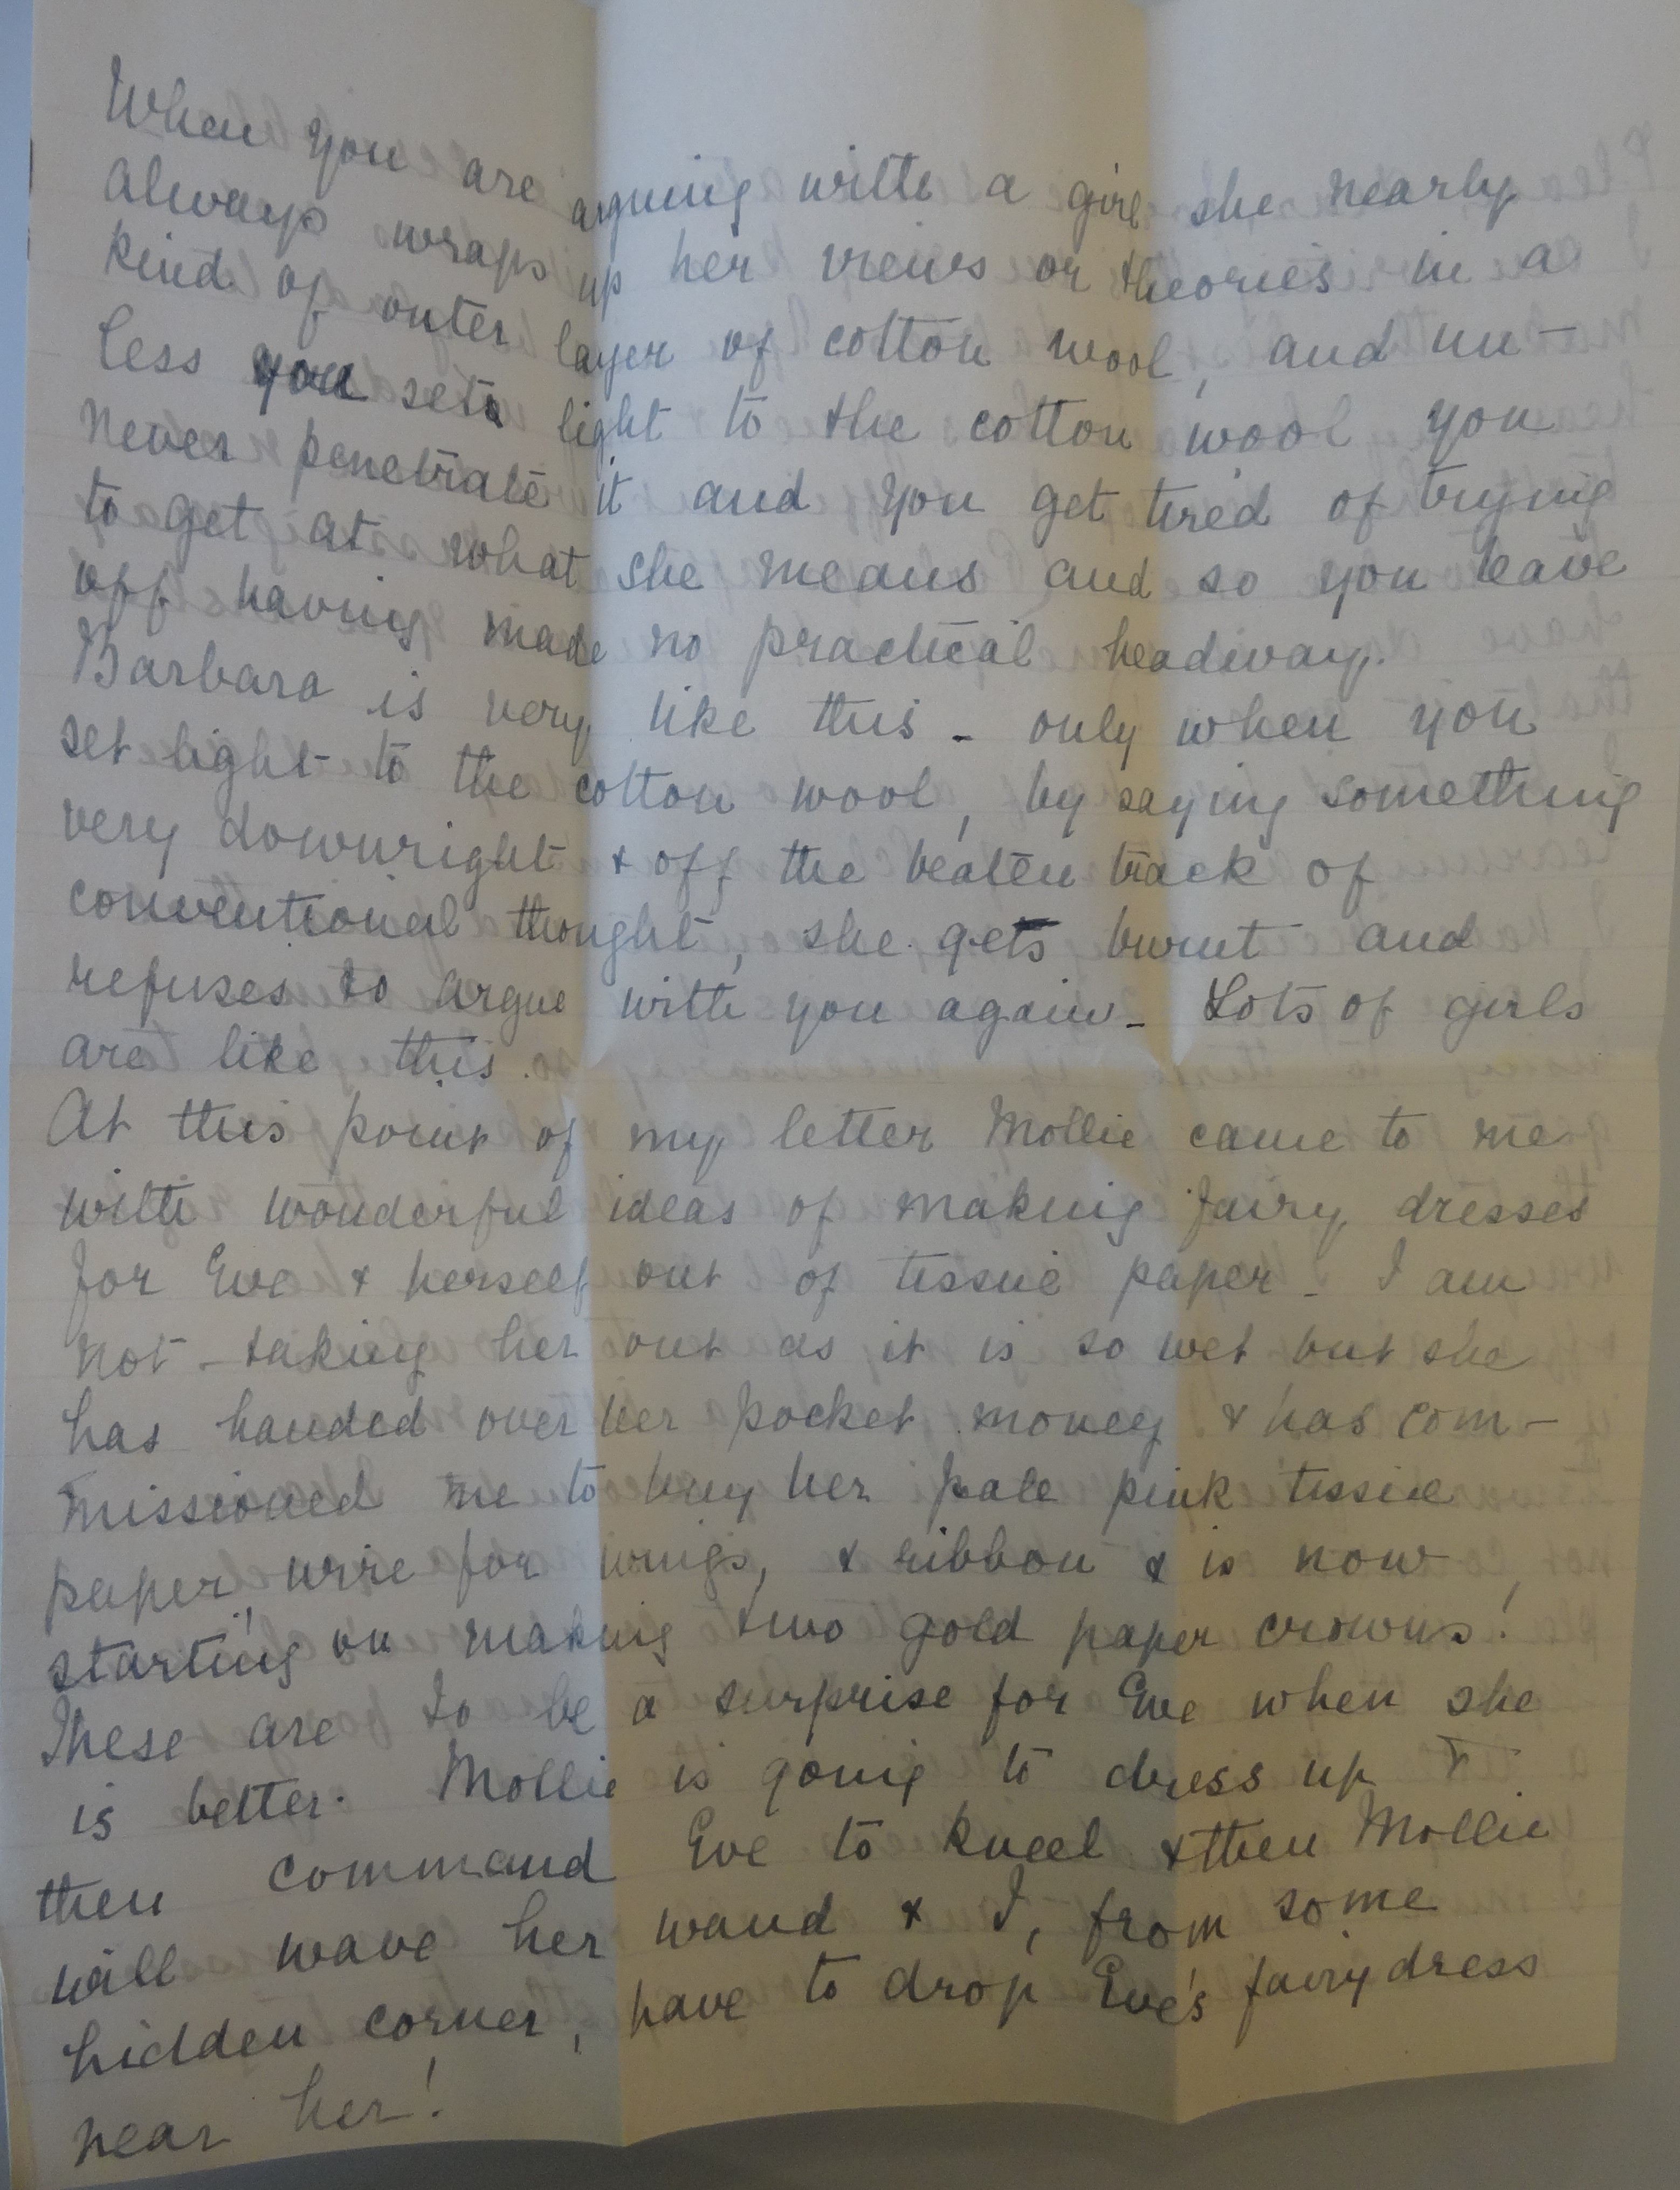 When you are arguing with a girl she nearly
always wraps up her views or theories in a
kind of outer layer of cotton wool, and un-
less you set light to the cotton wool you
never penetrate it and you get tired of trying
to get at what she means and so you leave
off having made no practical headway.
Barbara is very like this - only when you
set light to the cotton wool, by saying something
very downright & off the beaten track of
conventional thought, she gets burnt and
refuses to argue with you again - Lots of girls
are like this.
At this point of my letter Mollie came to me
with wonderful ideas of making fairy dresses
for Eve & herself out of tissue paper - I am
not - taking her out as it is so wet but she
has handed over her pocket money & has com-
missioned me to buy her pale pink tissue
paper, wire for wings, & ribbon & is now
starting on making two gold paper crowns!
These are to be a surprise for Eve when she
is better. Mollie is going to dress up &
then command Eve to kneel & then Mollie
will wave her wand & I, from some
hidden corner, have to drop Eve's fairy dress
near her!